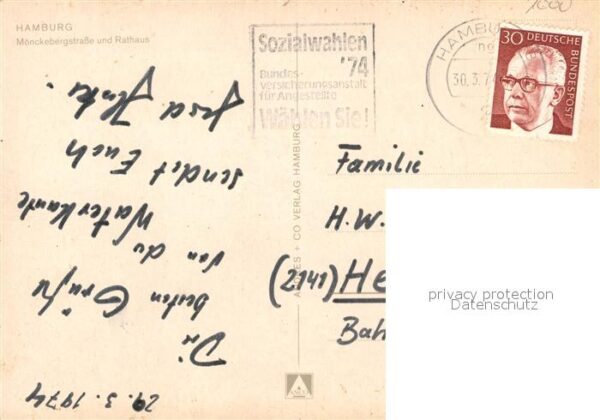 HAMBURG
Mönckebergstraße und Rathaus
Sozialwahlen
'74
Bundes-
versicherungsanstalt
für Angestellte
Wählen Sie!
HAMBURG
30.3.74
30 DEUTSCHE BUNDESPOST
1000
29.3.1974
Die
besten Grüße
von der
Waterkante
sendet Euch
ANDRES + CO VERLAG HAMBURG
Familie
H.W.
(2141) He
Bah
privacy protection
Datenschutz